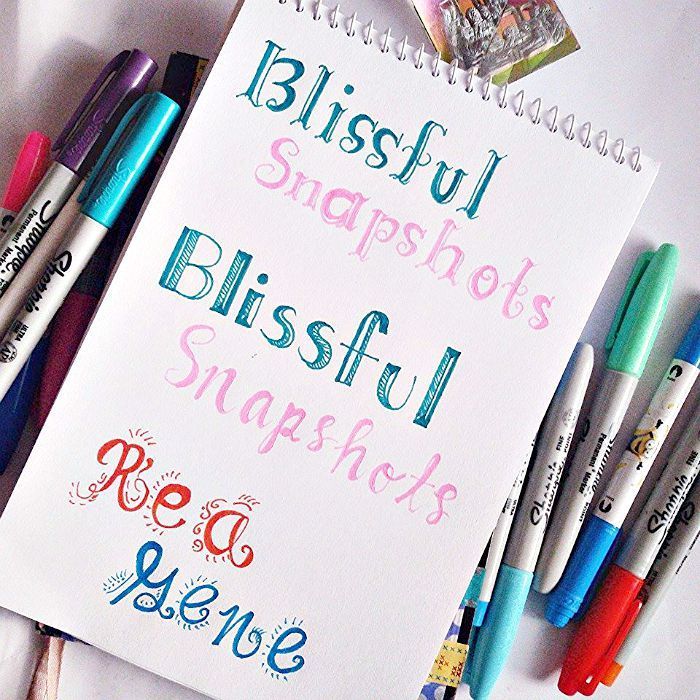 Blissful
Snapshots
Blissful
Snapshots
Rea
Gene
Sharpie
Permanent Marker
Sharpie
Sharpie
Sharpie
Sharpie